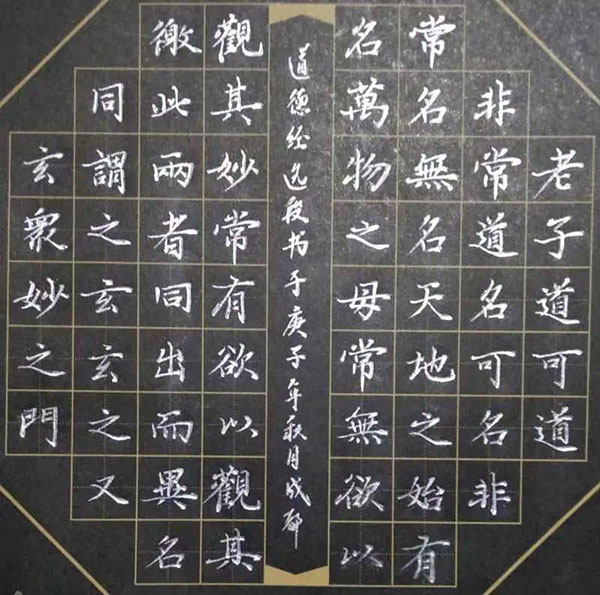 老子道可道
非常道名可名非
常名無名天地之始有
名萬物之母常無欲以
觀其妙常有欲以觀其
徼此兩者同出而異名
同謂之玄玄之又
玄衆妙之門
道德经选段书于庚子年秋月成都